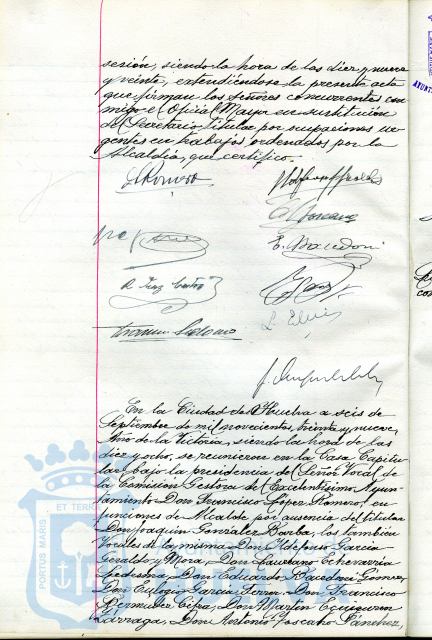 sesión, siendo la hora de las diez y nueve
y veinte, extendiéndose la presente acta
que firman los Señores concurrentes con
migo el Oficial Mayor en sustitución
del Secretario titular por ocupaciones ur
gentes en trabajos ordenados por la
Alcaldía, que certifico.
E. Bacedoni
R. Díaz
L.
En la Ciudad de Huelva a seis de
Septiembre de mil novecientos treinta y nueve,
Año de la Victoria, siendo la hora de las
diez y ocho, se reunieron en la Casa Capitu
lar bajo la presidencia del Señor Vocal de
la Comisión Gestora del Excelentísimo Ayun
tamiento Don Francisco López Romero, en
funciones de Alcalde por ausencia del titular
Don Joaquín González Barba, los también
Vocales de la misma Don Ildefonso García
Geraldo y Mora, Don Laureano Echevarría
Ledesma, Don Eduardo Bacedoni Gómez,
Don Eulogio García, Don Francisco
Bermúdez, Don Martín
Don Antonio Toscano Sánchez,
PORTUS MARIS
ET TERR